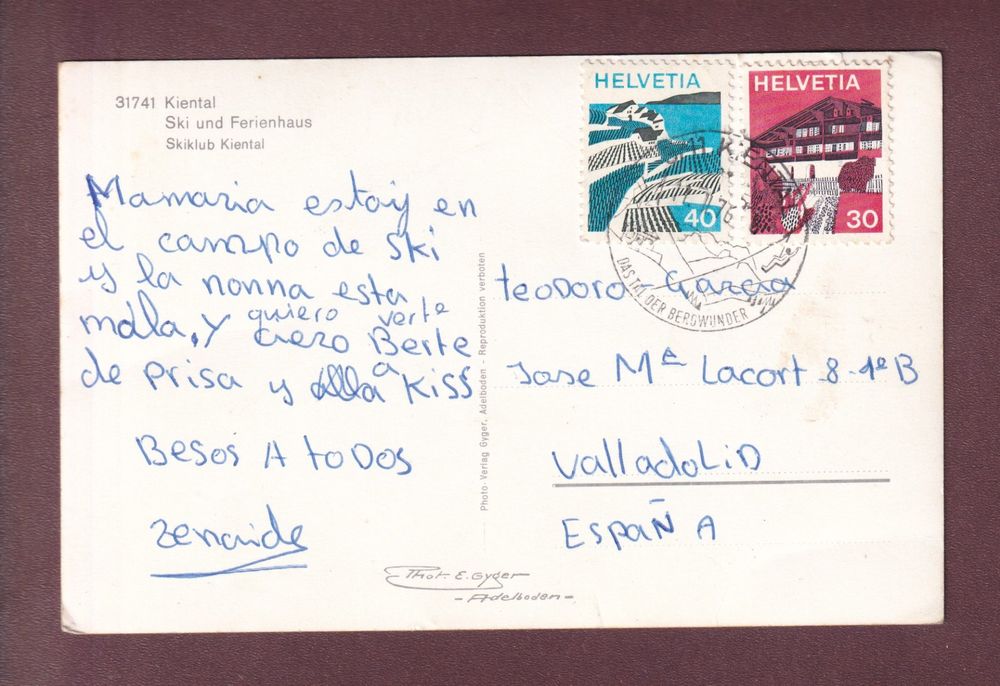 31741 Kiental
Ski und Ferienhaus
Skiklub Kiental
HELVETIA
40
HELVETIA
30
KIENTAL
76
DAS TAL DER BERGWUNDER
Mamaria estoy en
el campo de ski
y la nonna esta
mala, y quiero verte
Berte
de prisa y a Kiss
Besos A toDos
zenaide
Photo-Verlag Gyger, Adelboden - Reproduktion verboten
teoDoro Garcia
Jose Mª Lacort 8-1º B
ValladoLiD
ESpaÑA
Phot. E. Gyger
- Adelboden -